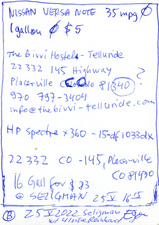 NISSAN VERSA NOTE 35 mpg Ø
1 gallon Ø $ 5
The Bivvi Hostel - Telluride
22 332 145 Highway
Placerville CO 81340 ?
970 797-3404
info@thebivvi-telluride.com
HP Spectre x360 - 15-df1033dx
22332 CO -145, Placerville
CO 81430
16 Gall for $ 83
@ SELIGMAN 25 V
B 25 V 2022 Seligman